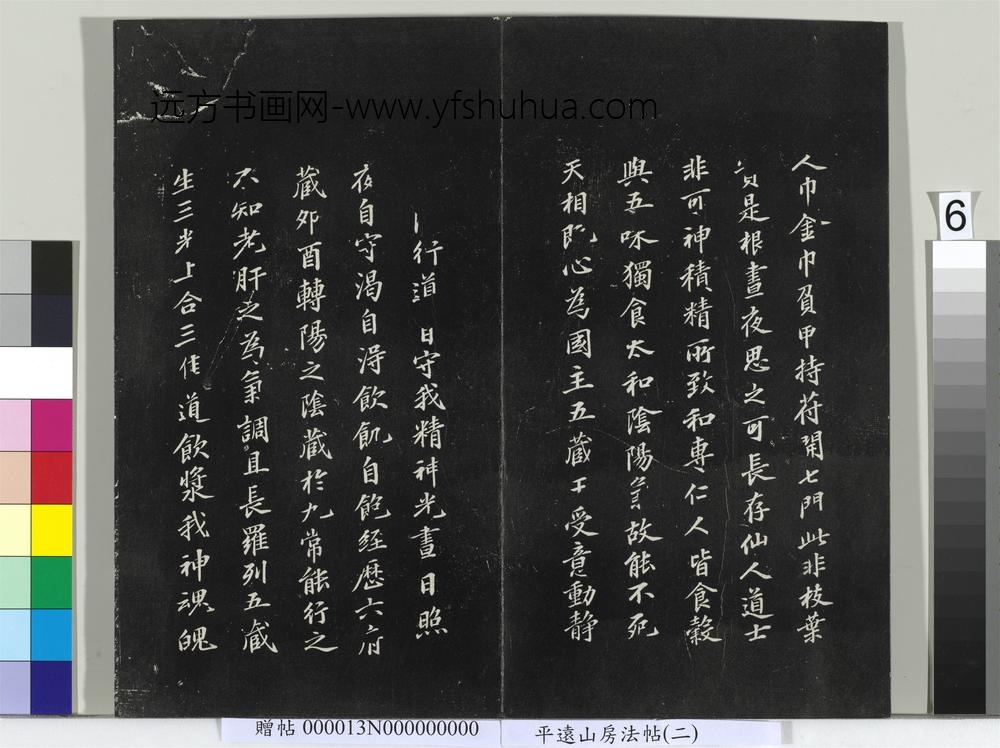 远方书画网-www.yfshuhua.com
人巾金巾負甲持苻開七門此非枝葉
是根晝夜思之可長存仙人道士
非可神積精所致和專仁人皆食穀
與五味獨食太和陰陽氣故能不死
天相既心為國主五藏王受意動靜
行道自守我精神光晝日照
夜自守渴自得飲飢自飽經歷六府
藏夘酉轉陽之陰藏於九常能行之
不知老肝之為氣調且長羅列五藏
生三光上合三佳道飲漿我神魂魄
6
贈帖 000013N000000000
平遠山房法帖(二)